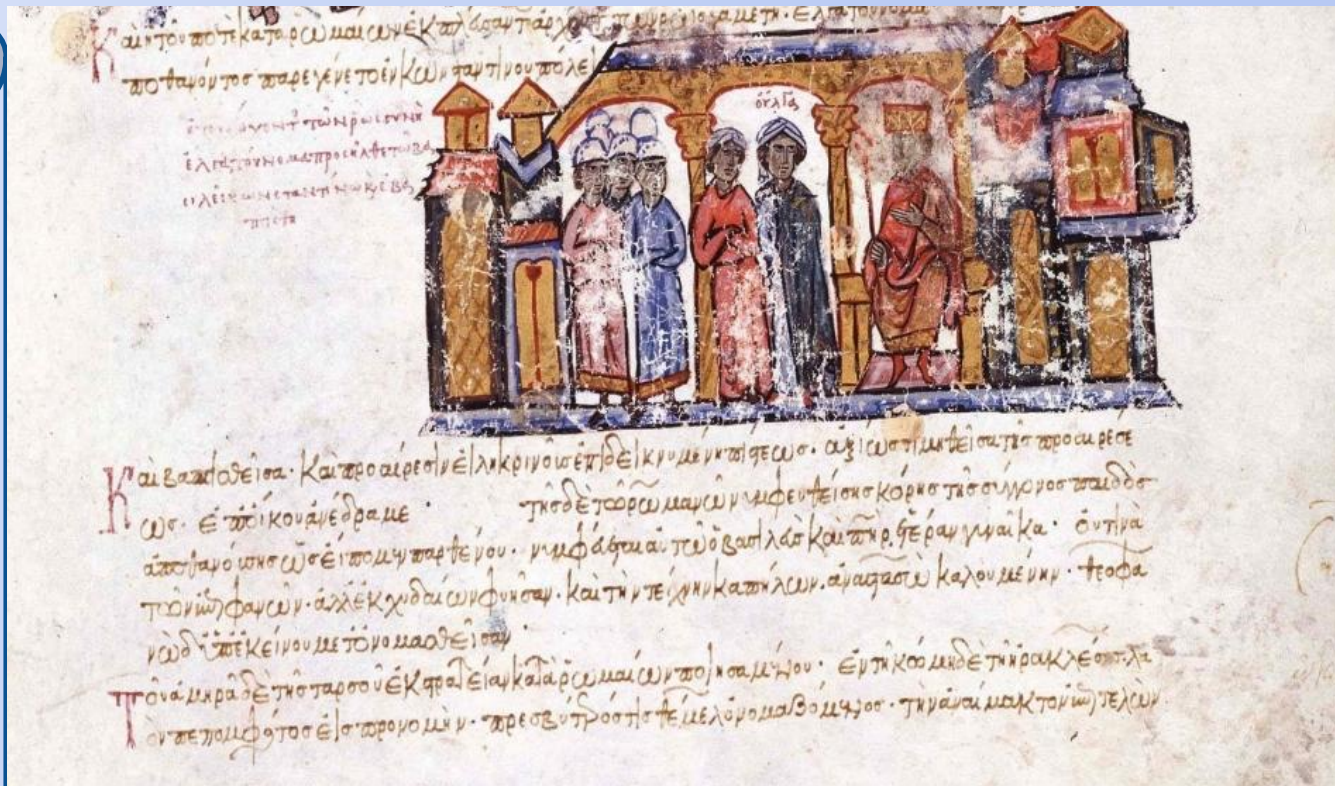 Καὶ ἡ τοῦ ποτὲ κατὰ ῥωμαίων ἐκπλεύσαντος ἄρχοντος τῶν ῥῶς γαμετὴ· ἔλγα τοὔνομα
ἀποθανόντος παρεγένετο ἐν κωνσταντινουπόλει
τῶν ρῶς
ἔλγα τοὔνομα προσῆλθε τῶ βα
σιλεῖ κωνσταντίνω κ ἐβα
πτίσθη
ὁύλγα
Καὶ βαπτισθεῖσα· καὶ προαίρεσιν εἰλικρινοῦς ἐπιδεικνυμένη πίστεως· ἀξίως τιμηθεῖσα τῆς προαιρέσε
ως· ἐπ οἴκου ἀνέδραμε τῆς δὲ τῶ ῥωμανῶ νυμφευθείσης κόρης τῆς συγγόνου παιδὸς
ἀποθανούσης ὡς εἴπομεν παρθένου· νυμφᾶται αὐτῶ ὁ βασιλεὺς καὶ πηρ ἑτέραν γυναῖκα· οὔ τινὰ
τῶν ἐπιφανῶν· ἀλλ ἐκ χυδαίων φυῆσαν· καὶ τὴν τέχνην καπήλων· ἀναστασὼ καλουμένην· θεοφα
νὼ δ ὑπ ἐκείνου μετονομασθεῖσαν
Τοῦ ἀμηρᾶ δὲ τῆς ταρσοῦ ἐκστρατείαν κατὰ ῥωμαίων ποιησαμένου· ἐν τῆ κώμη δὲ τῆ ἡρακλέος
πεπομφότος εἰς προνομὴν· πρεσβύτερος τὶς θεμὲλ ὄνομα τὴν ἀναίμακτον ἐπιτελῶν